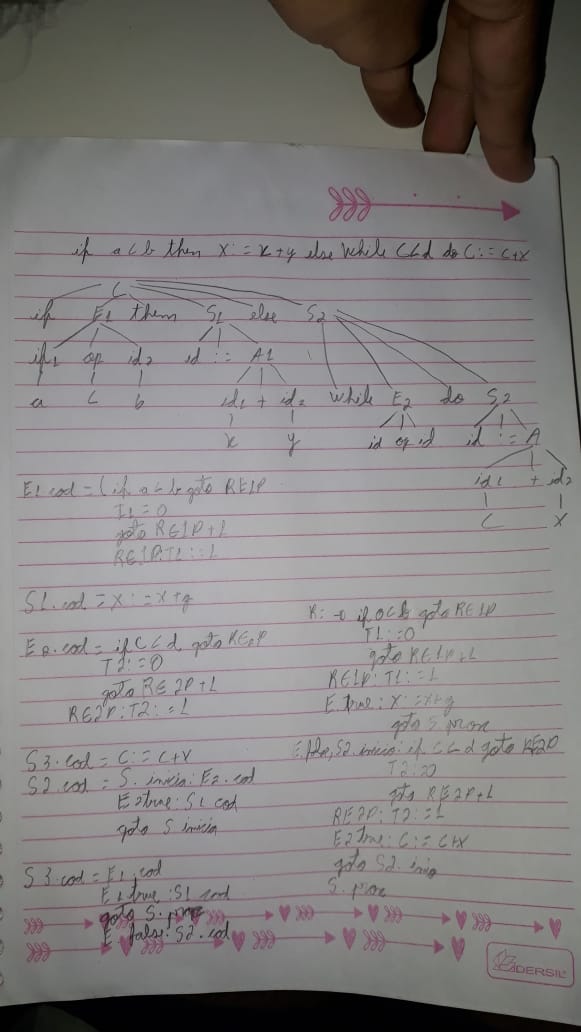 if a < b then x := x + y else while C < d do C := C + x
C
if E1 then S1 else S2
if1 op id2 id := A1
a < b id1 + id2 while E2 do S2
x y id op id id := A
id1 + id2
C x
E1.cod = (if a < b goto RE1P
T1 = 0
goto RE1P+1
RE1P:T1:=1
S1.cod = x := x + y
E2.cod = if C < d goto RE2P
T2:=0
goto RE2P+1
RE2P:T2:=1
S3.cod = C := C + x
S2.cod = S.inicia: E2.cod
E2true: S1 cod
goto S inicia
S3.cod = E1.cod
E1true: S1 cod
goto S.prox
E false: S2.cod
R: if a < b goto RE1P
T1:=0
goto RE1P+1
RE1P:T1:=1
E.true: x := x + y
goto S prox
E.false, S2.inicio: if C < d goto RE2P
T2:=0
goto RE2P+1
RE2P:T2:=1
E2true: C := C + x
goto S2.inicio
S.prox
DERSIL